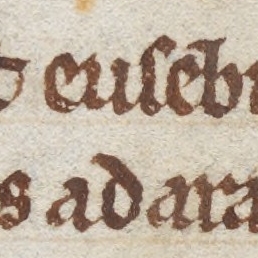 euseb
s ad ara